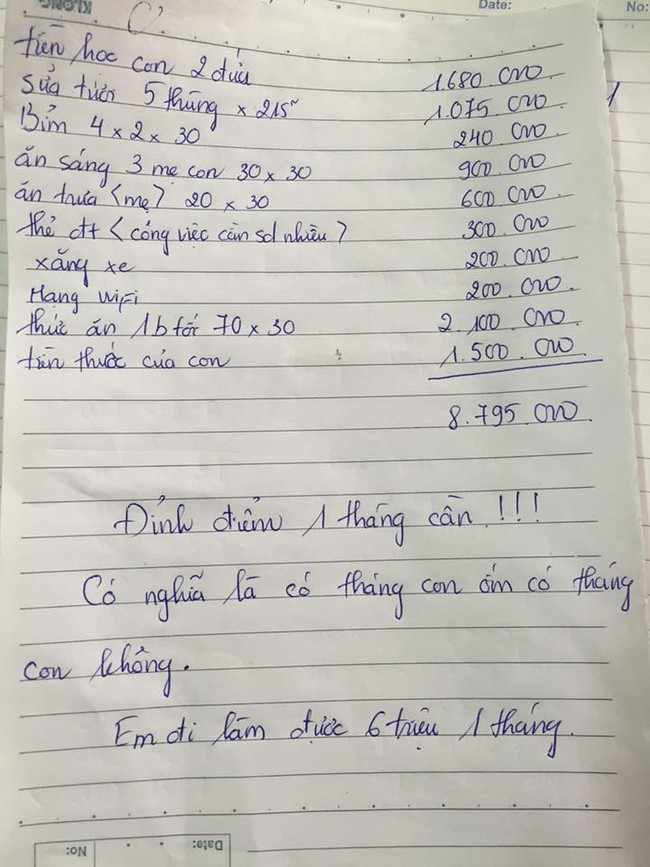 KLONG
Date:
No:
tiền học con 2 đứa 1.680.000
Sửa tươi 5 thùng x 215ⁿ 1.075.000
Bỉm 4 x 2 x 30 240.000
ăn sáng 3 mẹ con 30 x 30 900.000
ăn trưa (mẹ) 20 x 30 600.000
thẻ đt (công việc cần sd nhiều) 300.000
xăng xe 200.000
Mạng wifi 200.000
thức ăn 1b tối 70 x 30 2.100.000
tiền thuốc của con 1.500.000
8.795.000
Đỉnh điểm 1 tháng cần !!!
Có nghĩa là có tháng con ốm có tháng
con không.
Em đi làm được 6 triệu 1 tháng.
No:
Date: